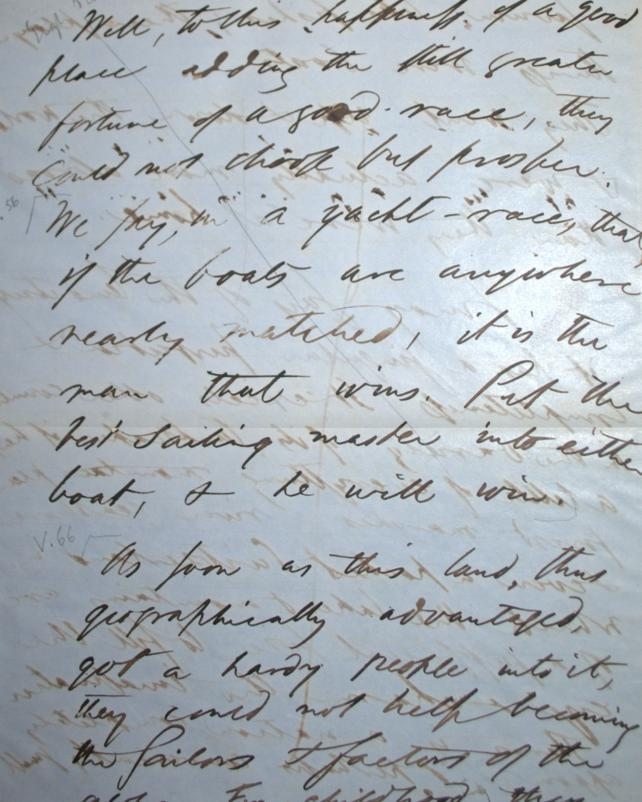 Well, to this happiness of a good
place adding the still greater
fortune of a good race, they
could not choose but prosper.
56
We say, in a yacht-race, that
if the boats are anywhere
nearly matched, it is the
man that wins. Put the
best Sailing master into either
boat, & he will win.
V.66
As soon as this land, thus
geographically advantaged,
got a hardy people into it,
they could not help becoming
the Sailors & factors of the
globe. From childhood they